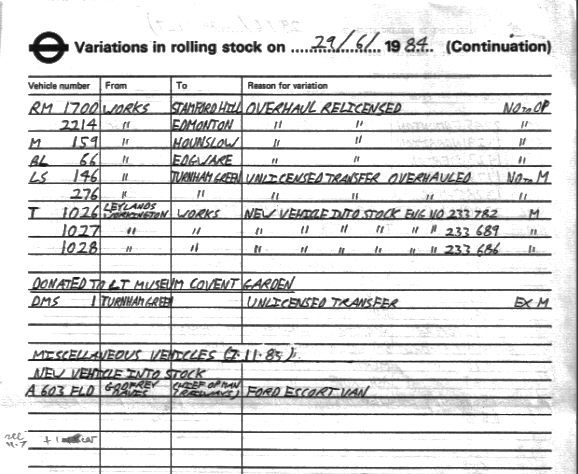 Variations in rolling stock on 29/6/ 1984. (Continuation)
Vehicle number From To Reason for variation
RM 1700 WORKS STAMFORD HILL OVERHAUL RELICENSED NO TO OP
2214 " EDMONTON " " "
M 159 " HOUNSLOW " " "
BL 66 " EDGWARE " " "
LS 146 " TURNHAM GREEN UNLICENSED TRANSFER OVERHAULED NO TO M
276 " " " " " "
T 1026 LEYLANDS WORKINGTON WORKS NEW VEHICLE INTO STOCK ENG NO 233 782 M
1027 " " " " " " " " 233 689 "
1028 " " " " " " " " 233 686 "
DONATED TO LT MUSEUM COVENT GARDEN
DMS 1 TURNHAM GREEN UNLICENSED TRANSFER EX M
MISCELLANEOUS VEHICLES (7.11.83).
NEW VEHICLE INTO STOCK
A 603 FLD GODFREY DAVIS (CHIEF OP MAN RAILWAYS) FORD ESCORT VAN
+ 1